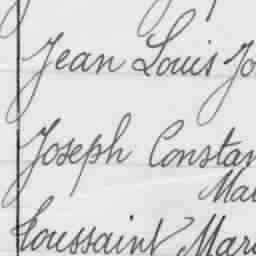 Jean Louis Jo
Joseph Constan
Mar
Toussaint Mar